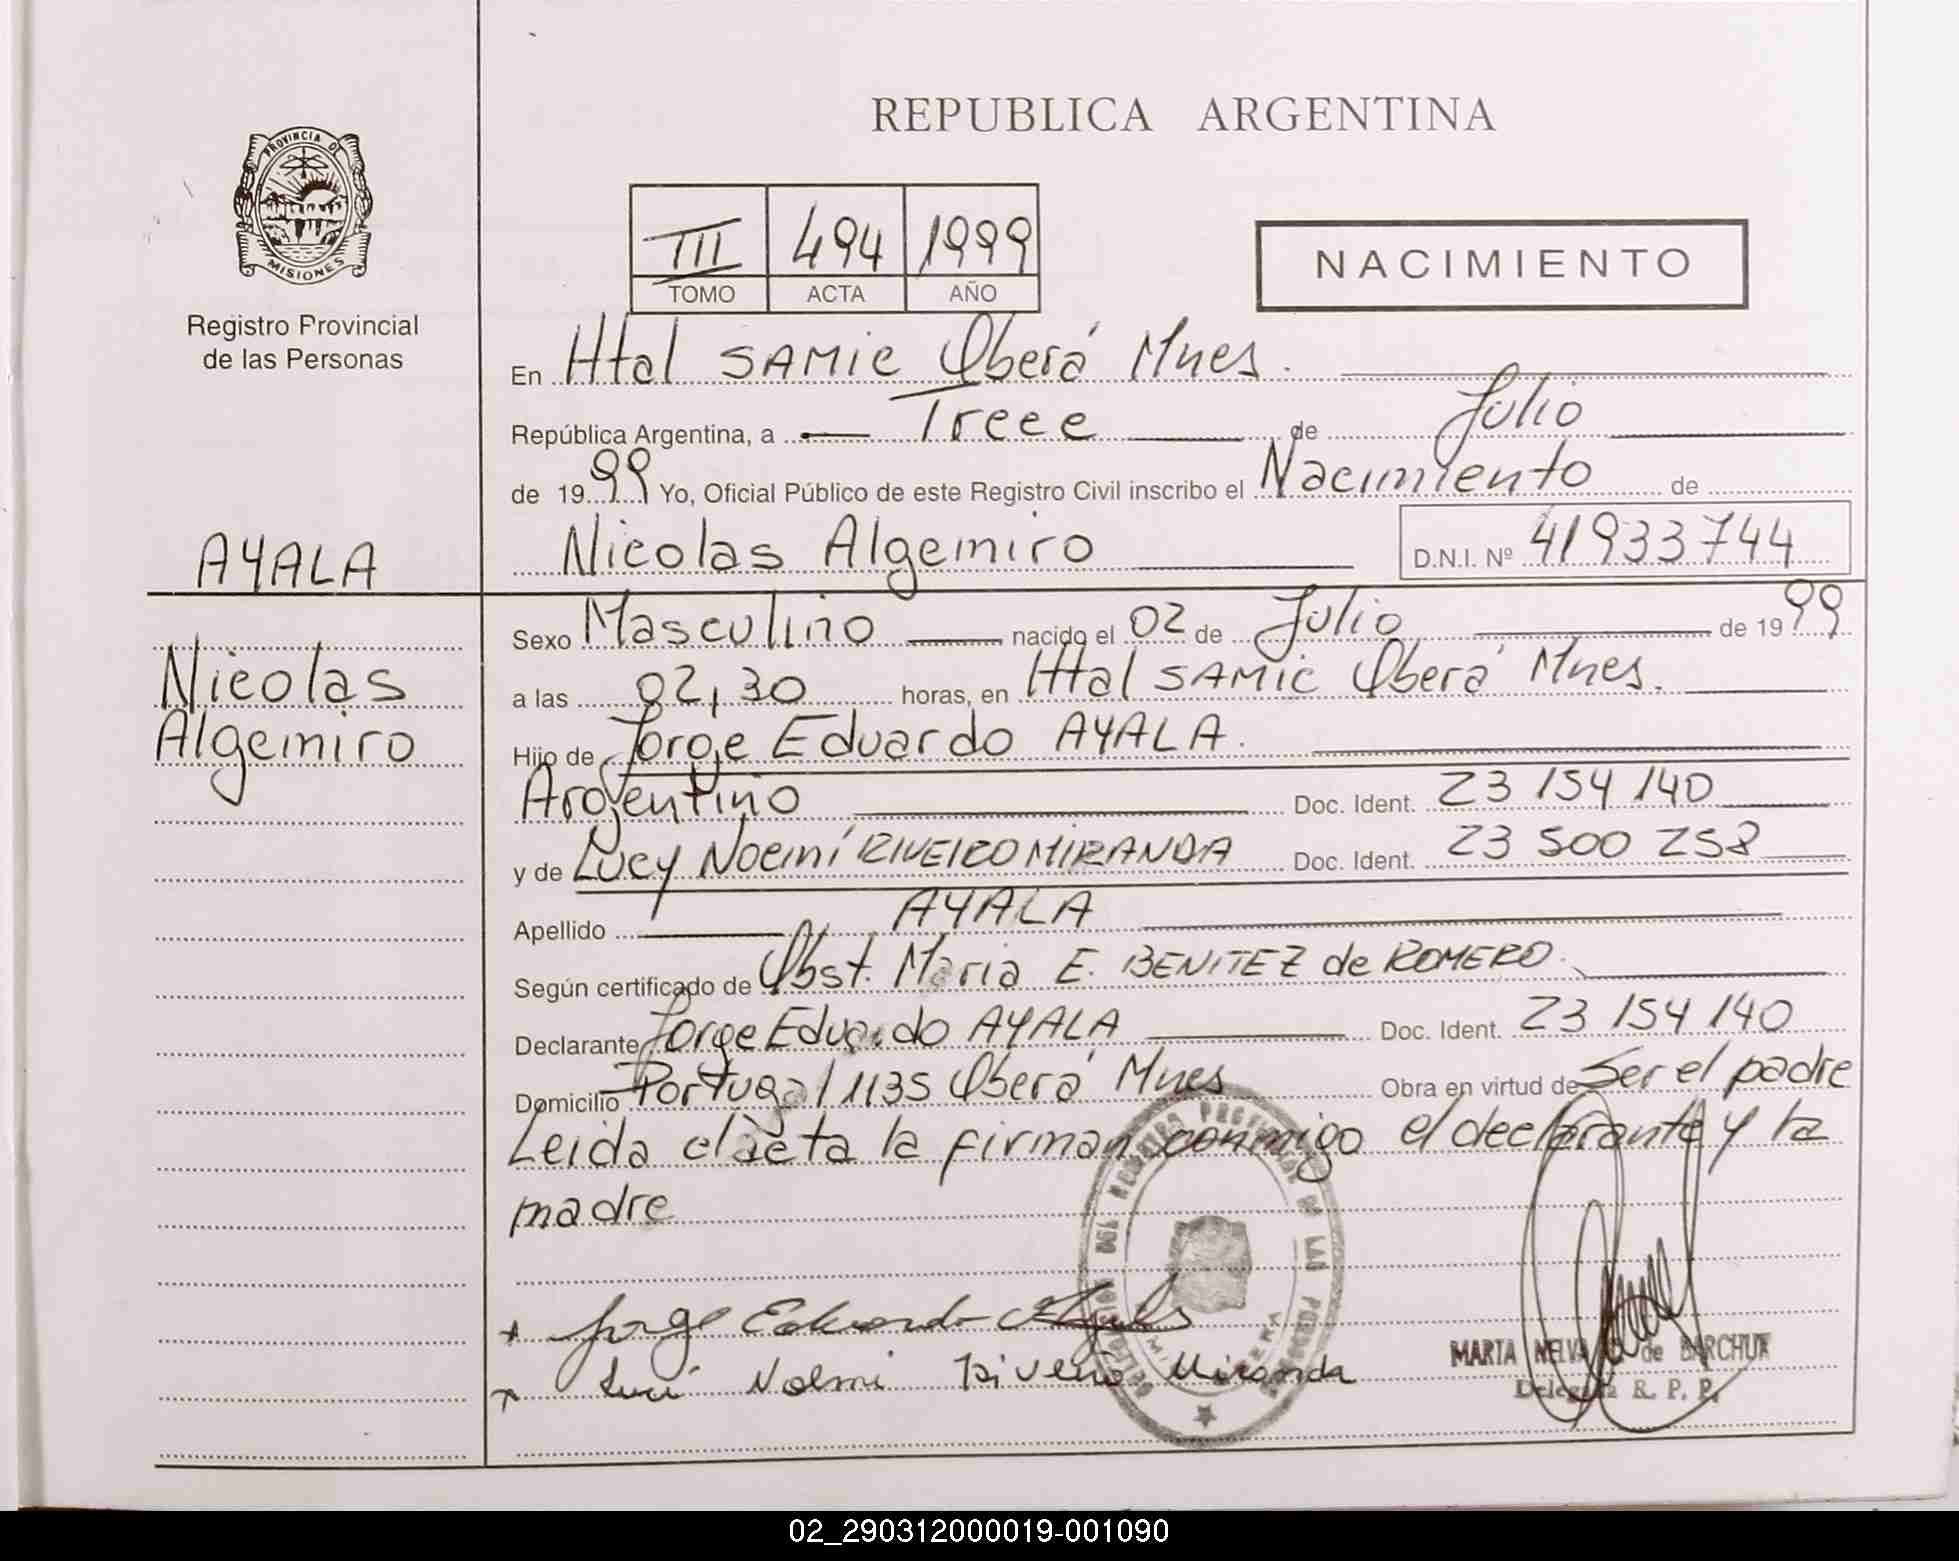 REPUBLICA ARGENTINA
PROVINCIA DE
MISIONES
Registro Provincial
de las Personas
III 494 1999
TOMO ACTA AÑO
NACIMIENTO
En Htal SAMIC Oberá Mnes.
República Argentina, a Trece de Julio
de 1999 Yo, Oficial Público de este Registro Civil inscribo el Nacimiento de
Nicolas Algemiro D.N.I. Nº 41933744
AYALA
Nicolas
Algemiro
Sexo Masculino nacido el 02 de Julio de 1999
a las 02,30 horas, en Htal SAMIC Oberá Mnes.
Hijo de Jorge Eduardo AYALA.
Argentino Doc. Ident. 23 154 140
y de Lucy Noemí RIVEIRO MIRANDA Doc. Ident. 23 500 258
Apellido AYALA
Según certificado de Obst. Maria E. BENITEZ de ROMERO.
Declarante Jorge Eduardo AYALA Doc. Ident. 23 154 140
Domicilio Portugal 1135 Oberá Mnes Obra en virtud de Ser el padre
Leida el acta la firman conmigo el declarante y la
madre
Jorge Eduardo Ayala
Noemi Miranda
MARTA NELVA de BARCHUK
Delegada R. P. P.
02_290312000019-001090